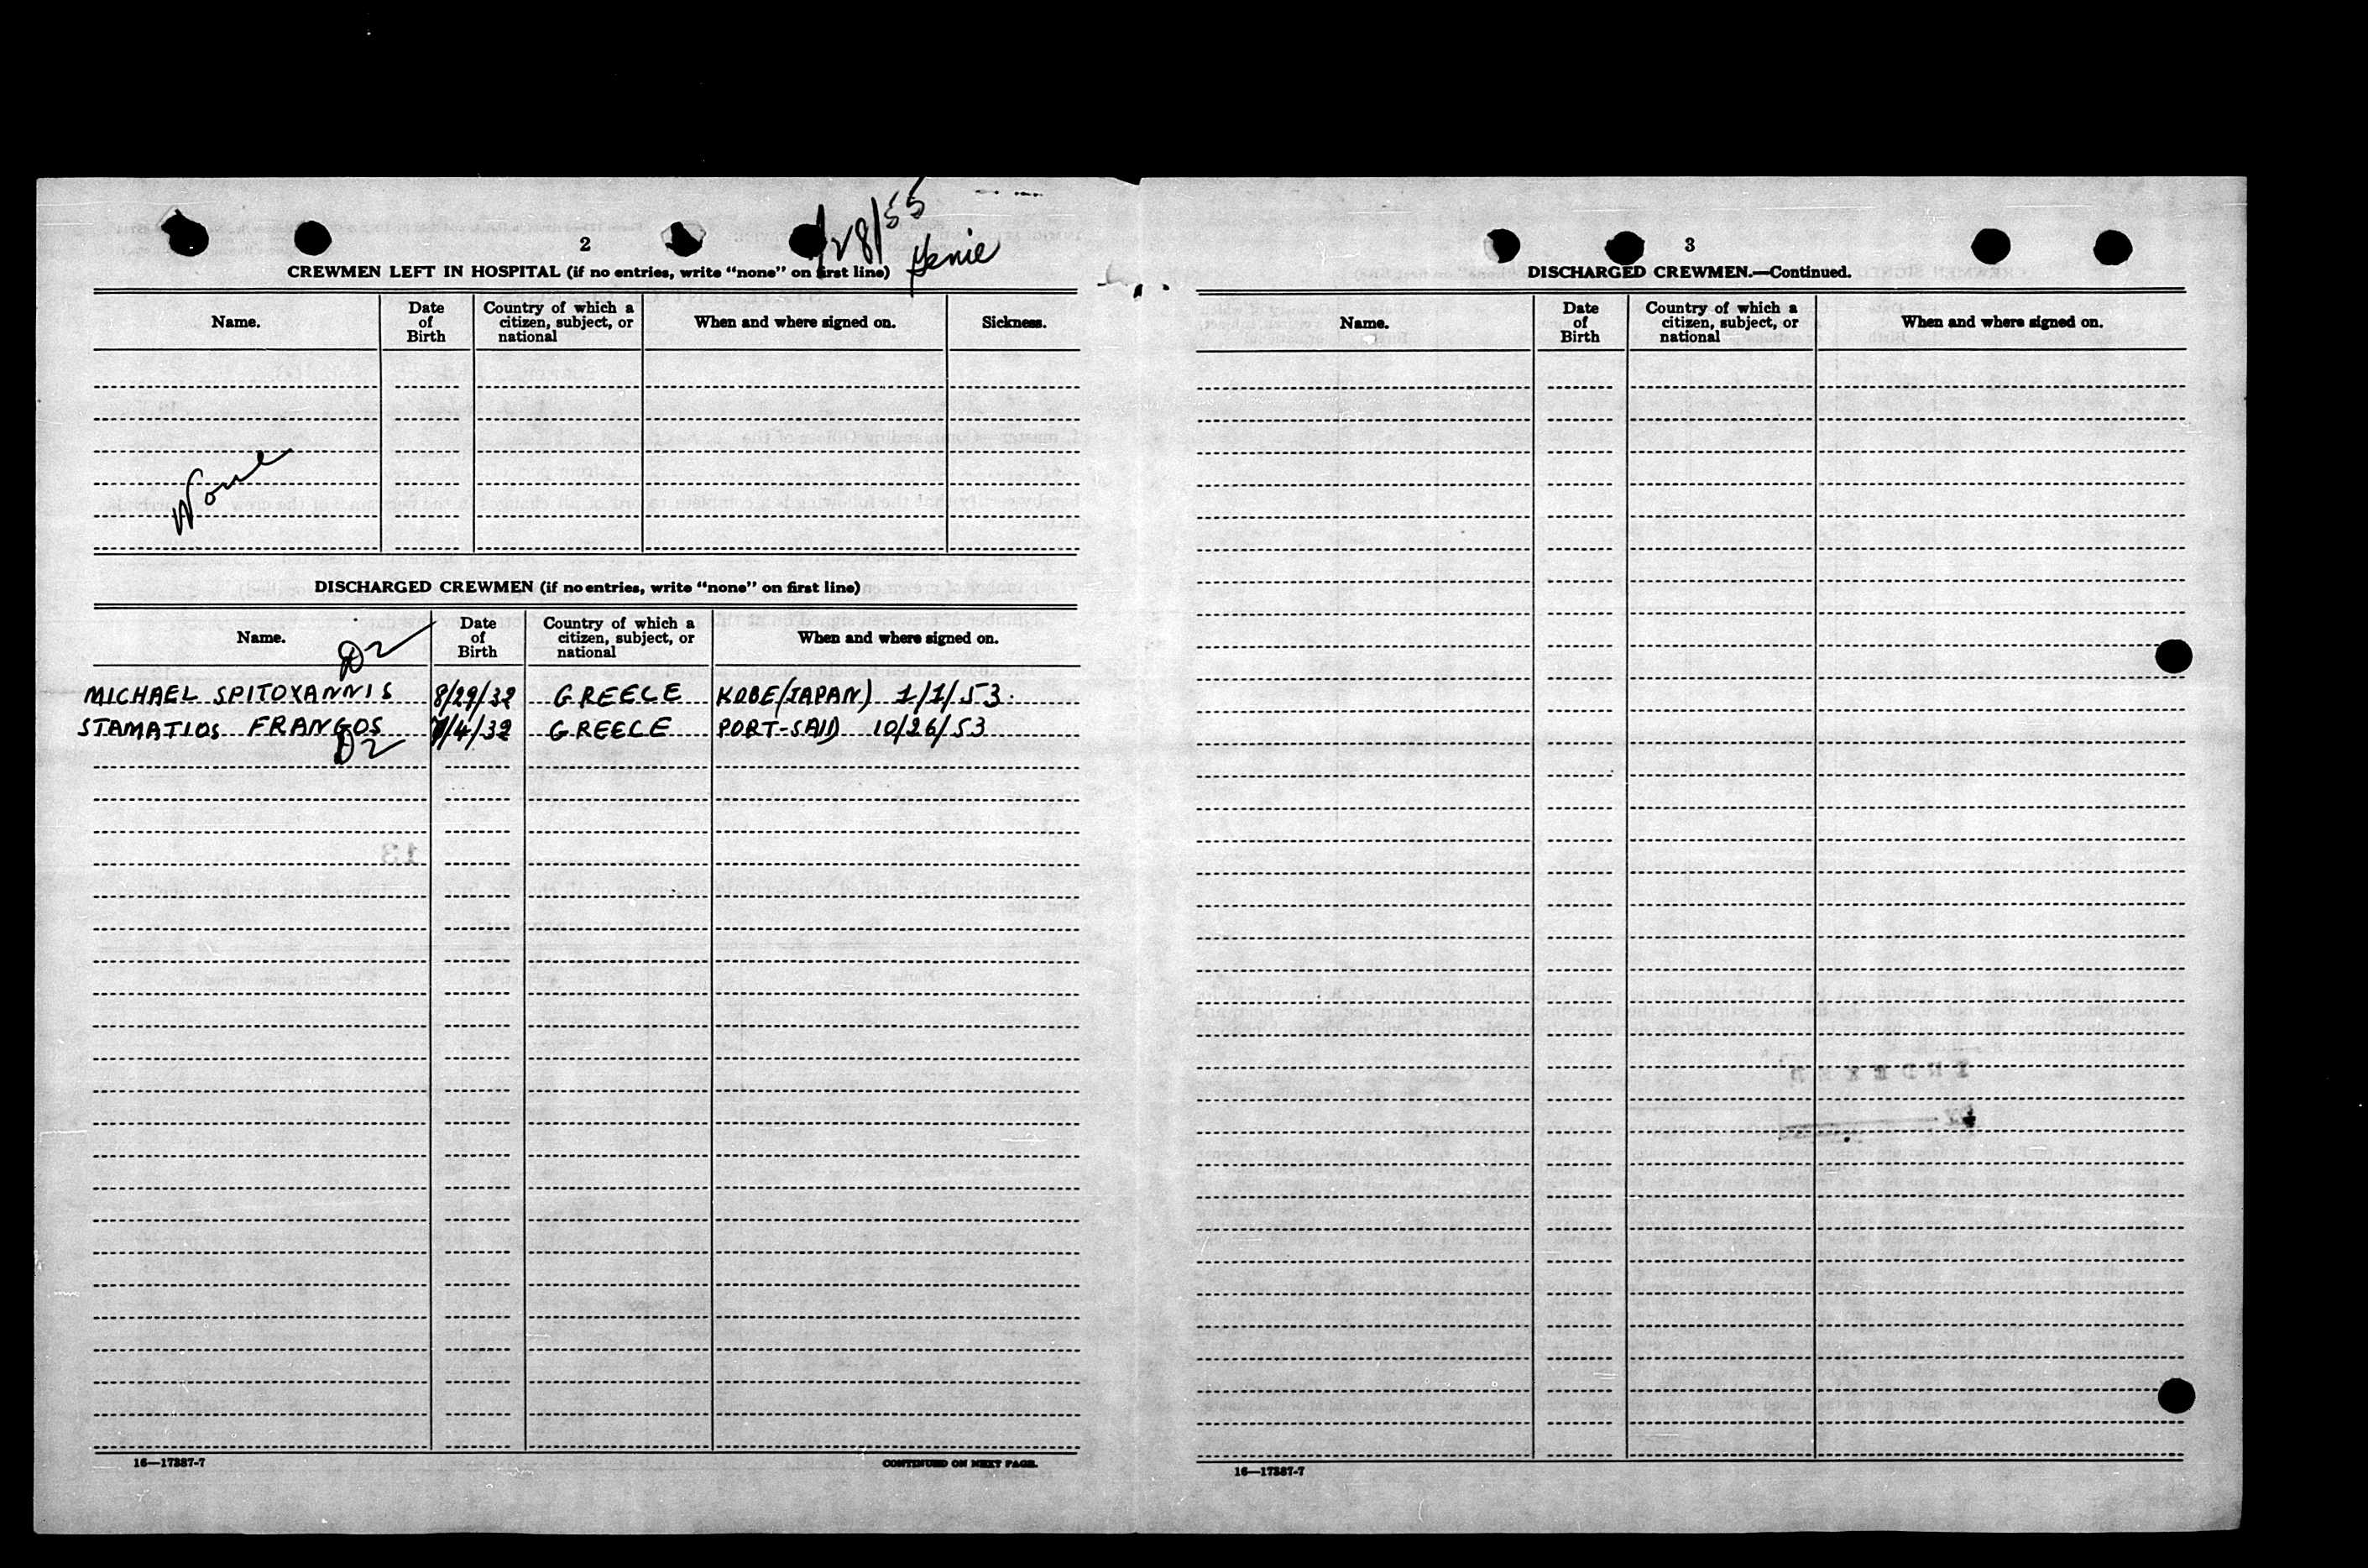 2
/28/55
Genie
CREWMEN LEFT IN HOSPITAL (if no entries, write "none" on first line)
Name. Date of Birth Country of which a citizen, subject, or national When and where signed on. Sickness.
None
DISCHARGED CREWMEN (if no entries, write "none" on first line)
Name. Date of Birth Country of which a citizen, subject, or national When and where signed on.
D2
MICHAEL SPITOYANNIS 8/29/32 GREECE KOBE (JAPAN) 1/1/53.
STAMATIOS FRANGOS 7/4/32 GREECE PORT-SAID 10/26/53
D2
16—17387-7 CONTINUED ON NEXT PAGE.
3
DISCHARGED CREWMEN.—Continued.
Name. Date of Birth Country of which a citizen, subject, or national When and where signed on.
16—17387-7